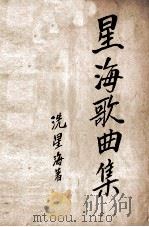 星海歌曲集
冼星海著
www.toopoo.com